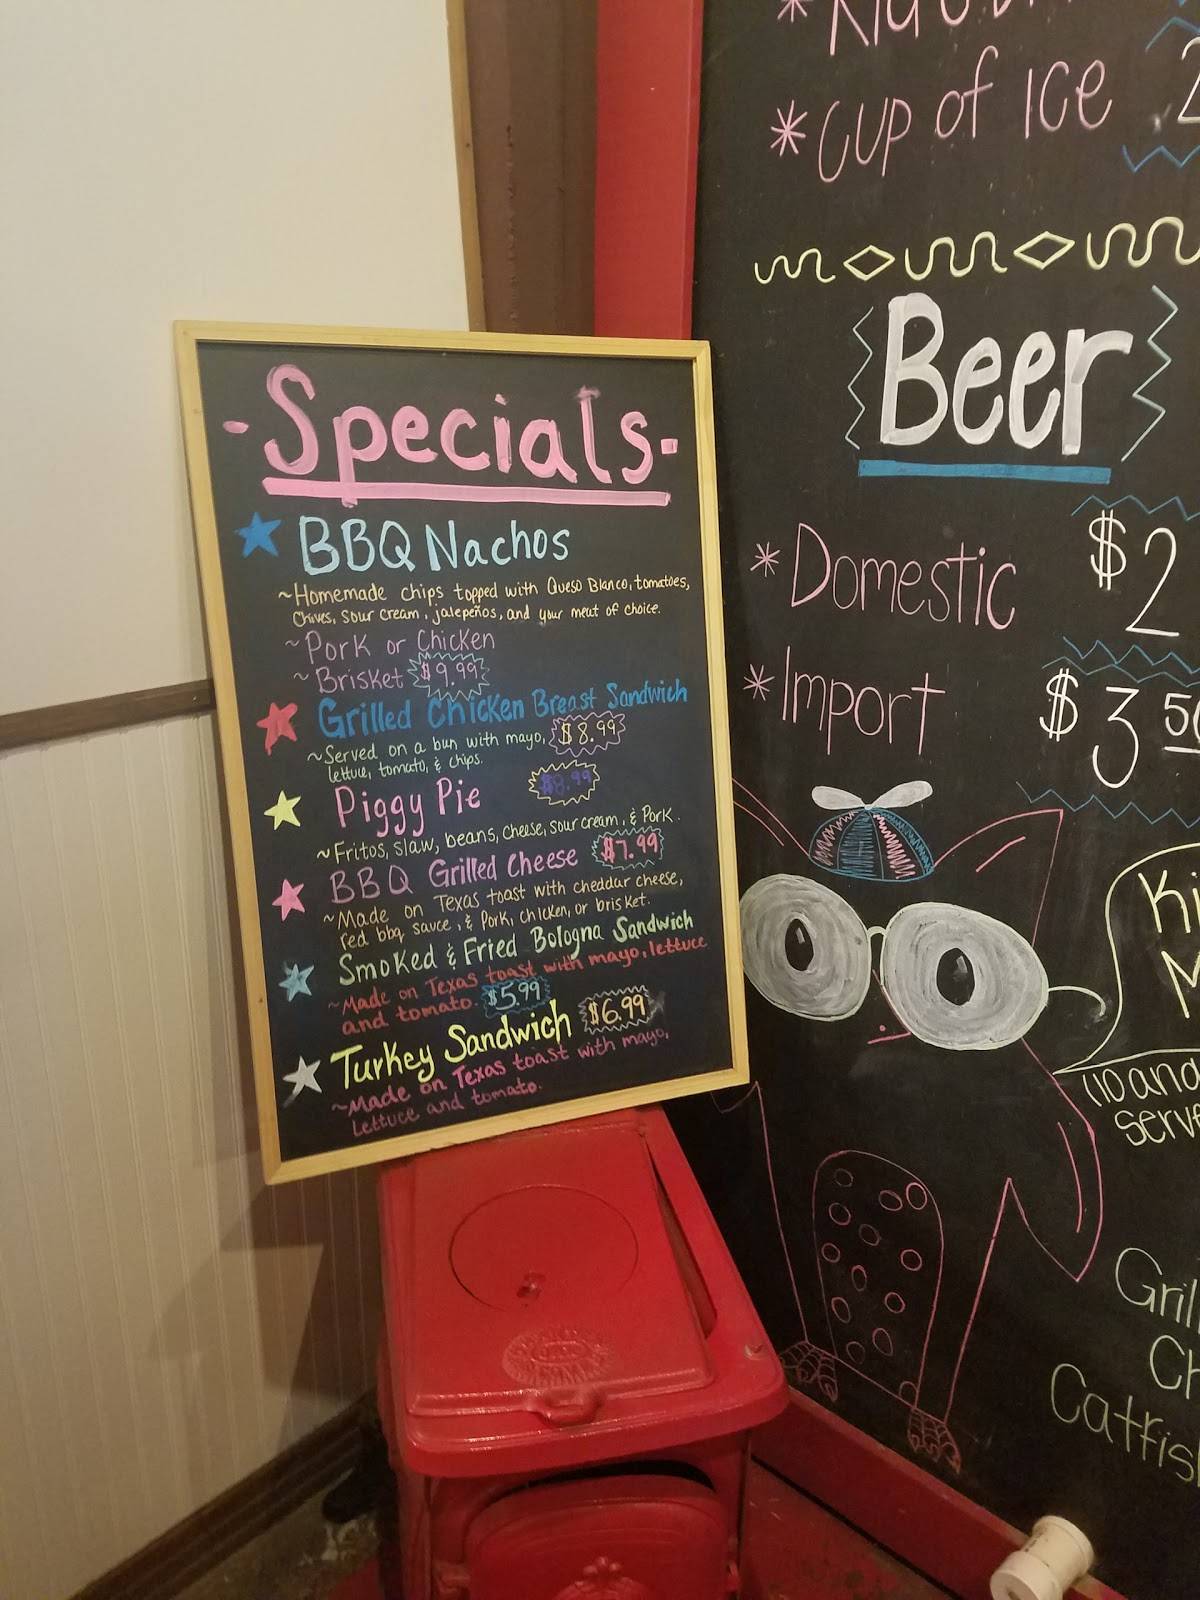 -Specials-
BBQ Nachos
~Homemade chips topped with Queso Blanco, tomatoes,
Chives, Sour Cream, jalepeños, and your meat of choice.
~Pork or Chicken
~Brisket $9.99
Grilled Chicken Breast Sandwich
~Served on a bun with mayo, $8.99
lettuce, tomato, & chips.
Piggy Pie $8.99
~Fritos, slaw, beans, cheese, sour cream, & Pork.
BBQ Grilled Cheese $7.99
~Made on Texas toast with cheddar cheese,
red bbq sauce, & Pork, chicken, or brisket.
Smoked & Fried Bologna Sandwich
~Made on Texas toast with mayo, lettuce
and tomato. $5.99
Turkey Sandwich $6.99
~Made on Texas toast with mayo,
Lettuce and tomato.
*Cup of Ice
Beer
*Domestic $2
*Import $3 50